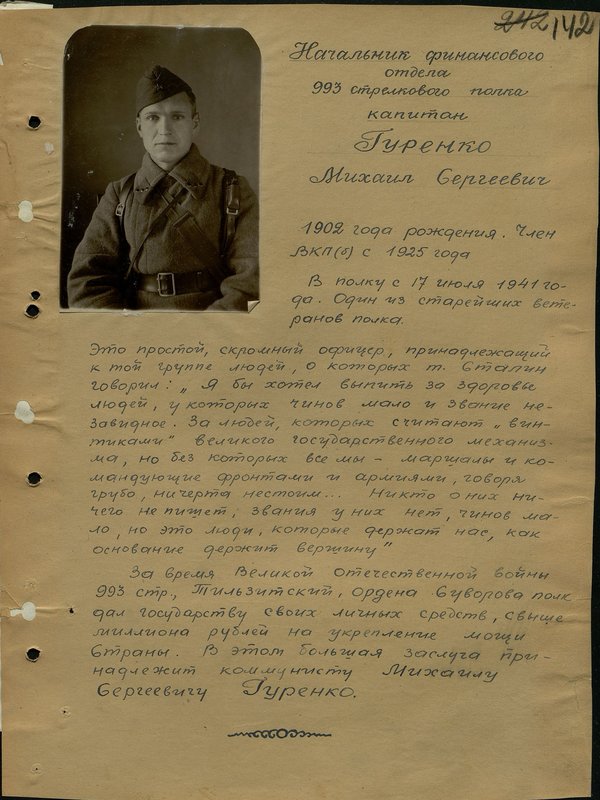 242 142
Начальник финансового
отдела
993 стрелкового полка
капитан
Гуренко
Михаил Сергеевич
1902 года рождения. Член
ВКП(б) с 1925 года
В полку с 17 июля 1941 го-
да. Один из старейших вете-
ранов полка.
Это простой, скромный офицер, принадлежащий
к той группе людей, о которых т. Сталин
говорил: „Я бы хотел выпить за здоровье
людей, у которых чинов мало и звание не-
завидное. За людей, которых считают „вин-
тиками" великого государственного механиз-
ма, но без которых все мы – маршалы и ко-
мандующие фронтами и армиями, говоря
грубо, ни черта нестоим... Никто о них ни-
чего не пишет, звания у них нет, чинов ма-
ло, но это люди, которые держат нас, как
основание держит вершину"
За время Великой Отечественной войны
993 стр., Тильзитский, ордена Суворова полк
дал государству своих личных средств, свыше
миллиона рублей на укрепление мощи
Страны. В этом большая заслуга при-
надлежит коммунисту Михаилу
Сергеевичу Гуренко.